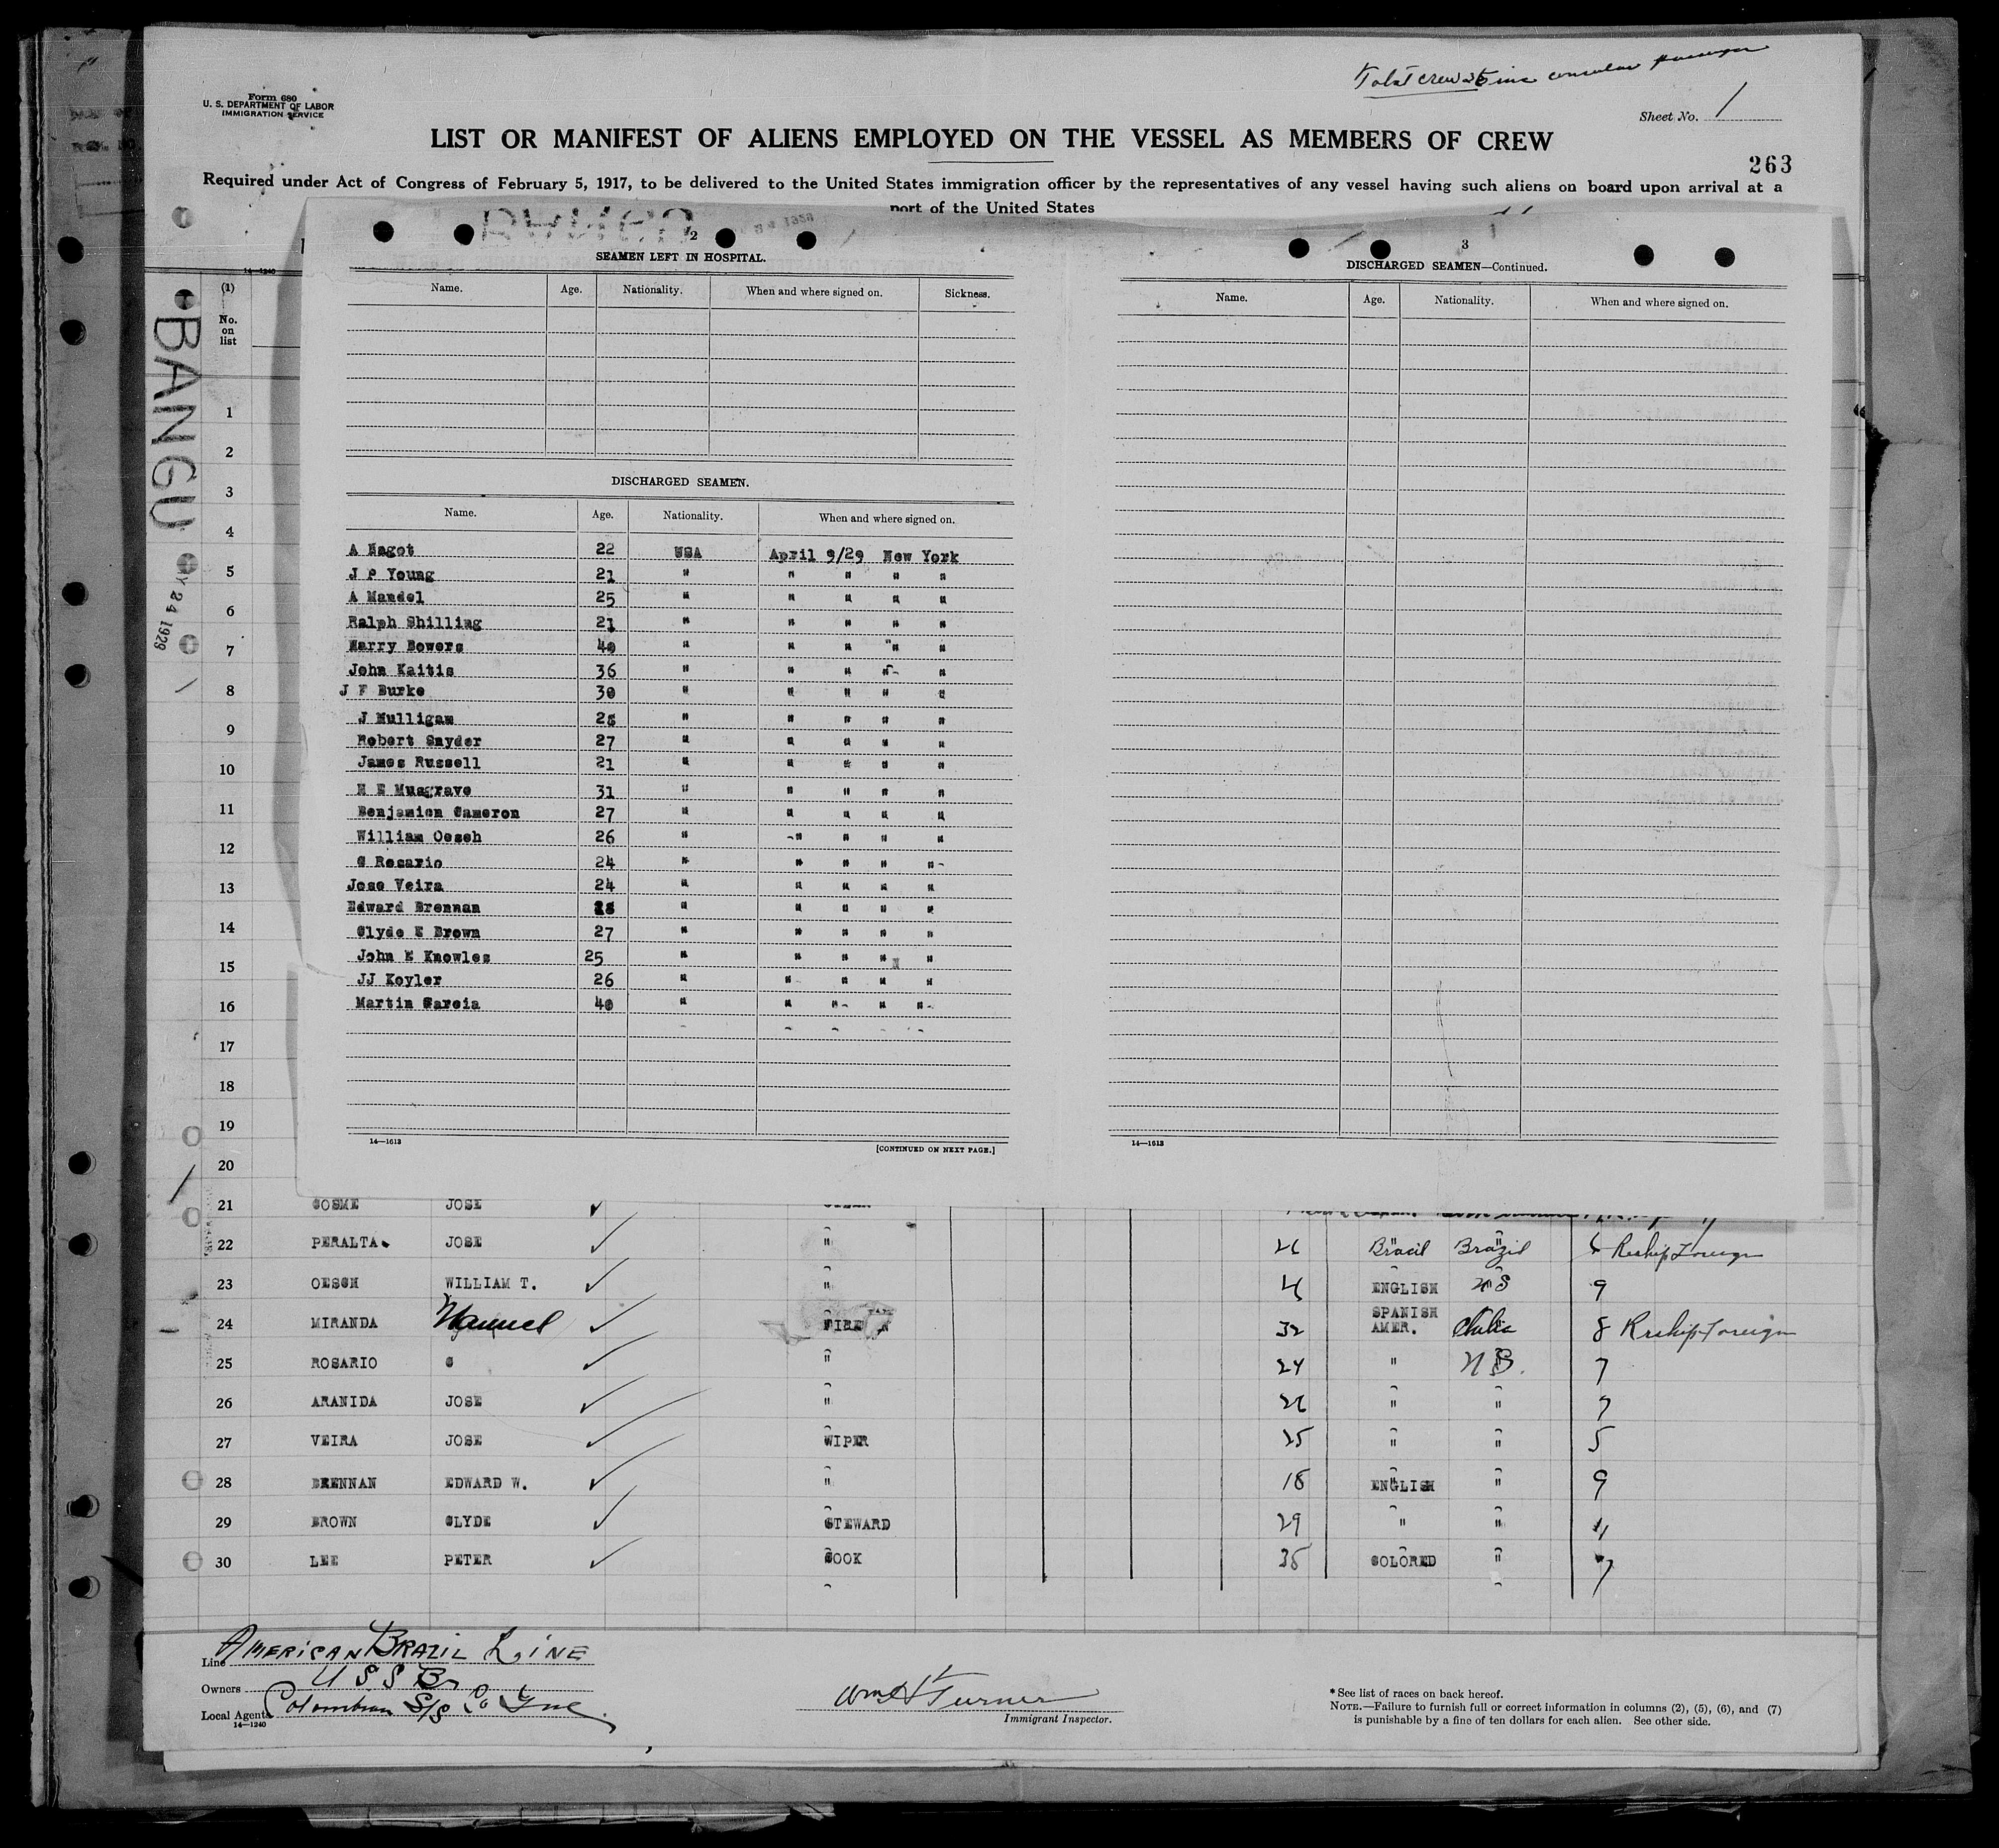 Total crew 26 inc consular passenger
Form 680
U. S. DEPARTMENT OF LABOR
IMMIGRATION SERVICE
Sheet No. 1
LIST OR MANIFEST OF ALIENS EMPLOYED ON THE VESSEL AS MEMBERS OF CREW
263
Required under Act of Congress of February 5, 1917, to be delivered to the United States immigration officer by the representatives of any vessel having such aliens on board upon arrival at a
port of the United States
14—1240
(1)
No.
on
list
BANGU
Y 24 1929
2
SEAMEN LEFT IN HOSPITAL.
Name. Age. Nationality. When and where signed on. Sickness.
DISCHARGED SEAMEN.
Name. Age. Nationality. When and where signed on.
A Nagot 22 USA April 9/29 New York
J P Young 21 " " " " "
A Mandel 25 " " " " "
Ralph Shilling 21 " " " " "
Harry Bowers 40 " " " " "
John Kaitis 36 " " " " "
J F Burke 30 " " " " "
J Mulligan " " " " "
Robert Snyder 27 " " " " "
James Russell 21 " " " " "
H E Musgrave 31 " " " " "
Benjamion Cameron 27 " " " " "
William Oesch 26 " " " " "
G Rosario 24 " " " " "
Jose Veira 24 " " " " "
Edward Brennan " " " " "
Clyde E Brown 27 " " " " "
John E Knowles 25 " " " " "
JJ Koyler 26 " " " " "
Martin Garcia 40 " " " " "
14—1613
[CONTINUED ON NEXT PAGE.]
3
DISCHARGED SEAMEN—Continued.
Name. Age. Nationality. When and where signed on.
14—1613
1
2
3
4
5
6
7
8
9
10
11
12
13
14
15
16
17
18
19
20
21 COSME JOSE
22 PERALTA JOSE " 26 Bracil Brazil 6 Reship Foreign
23 OESCH WILLIAM T. " ENGLISH US 9
24 MIRANDA Manuel FIREM N 32 SPANISH AMER. Chile 8 Reship Foreign
25 ROSARIO G " 24 " US. 7
26 ARANIDA JOSE " 26 " " 7
27 VEIRA JOSE WIPER 25 " " 5
28 BRENNAN EDWARD W. " 18 ENGLISH " 9
29 BROWN CLYDE STEWARD 29 " " 11
30 LEE PETER COOK 35 COLORED " 7
Line AMERICAN BRAZIL LINE
Owners U S S B
Local Agents Colombian S/S Co Inc.
14—1240
Wm H Turner
Immigrant Inspector.
* See list of races on back hereof.
NOTE.—Failure to furnish full or correct information in columns (2), (5), (6), and (7)
is punishable by a fine of ten dollars for each alien. See other side.